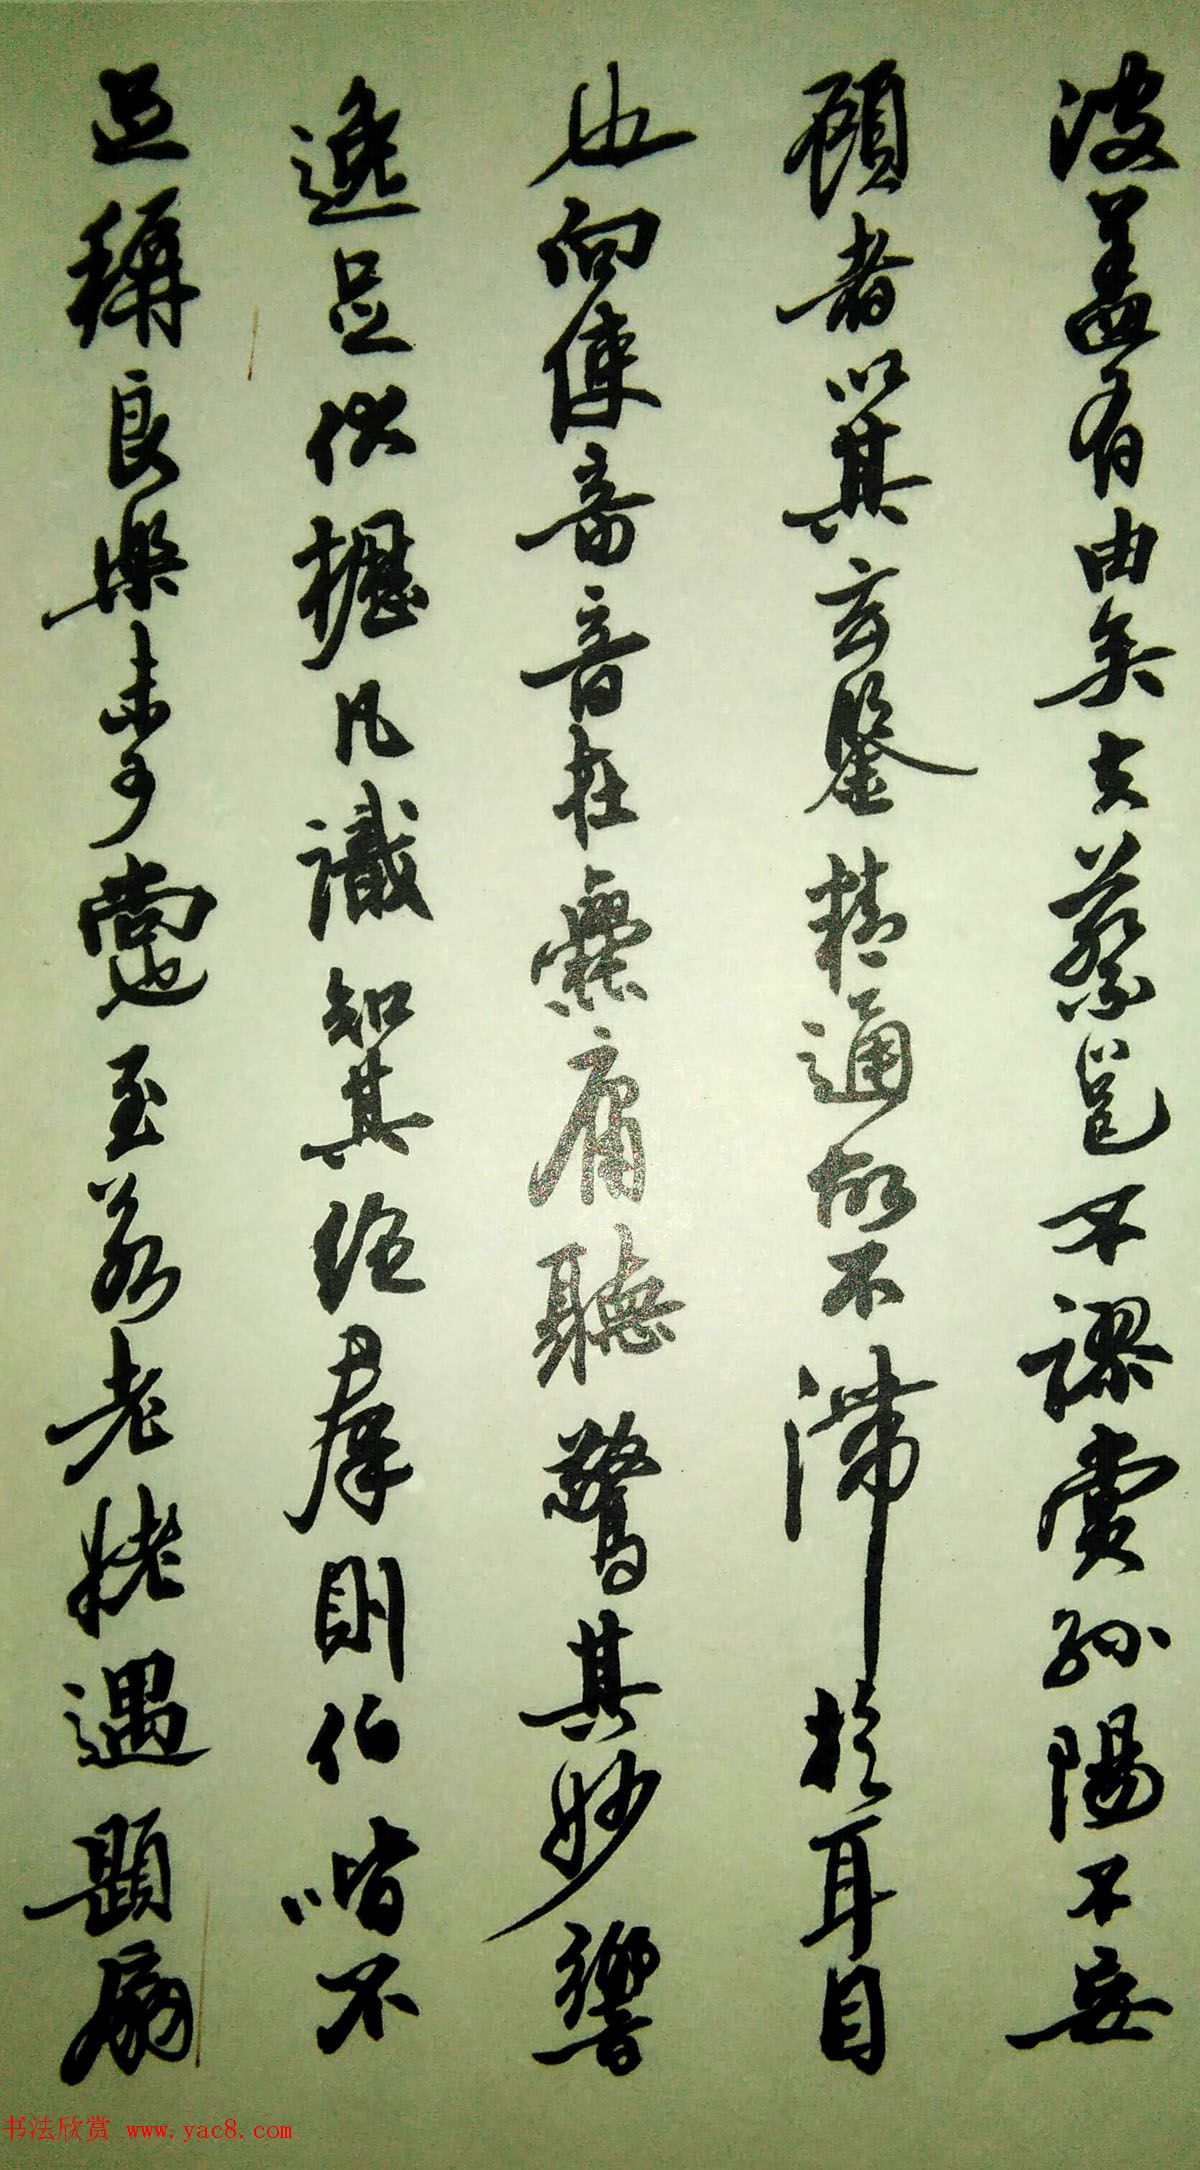 波盖有由矣夫蔡邕不謬賞孫陽不妄
顧者以其玄鑒精通故不滯於耳目
也向使奇音在爨庸聽驚其妙響
逸足伏櫪凡識知其絶羣則伯喈不
足稱良樂未可尚也至若老姥遇題扇
书法欣赏 www.yac8.com